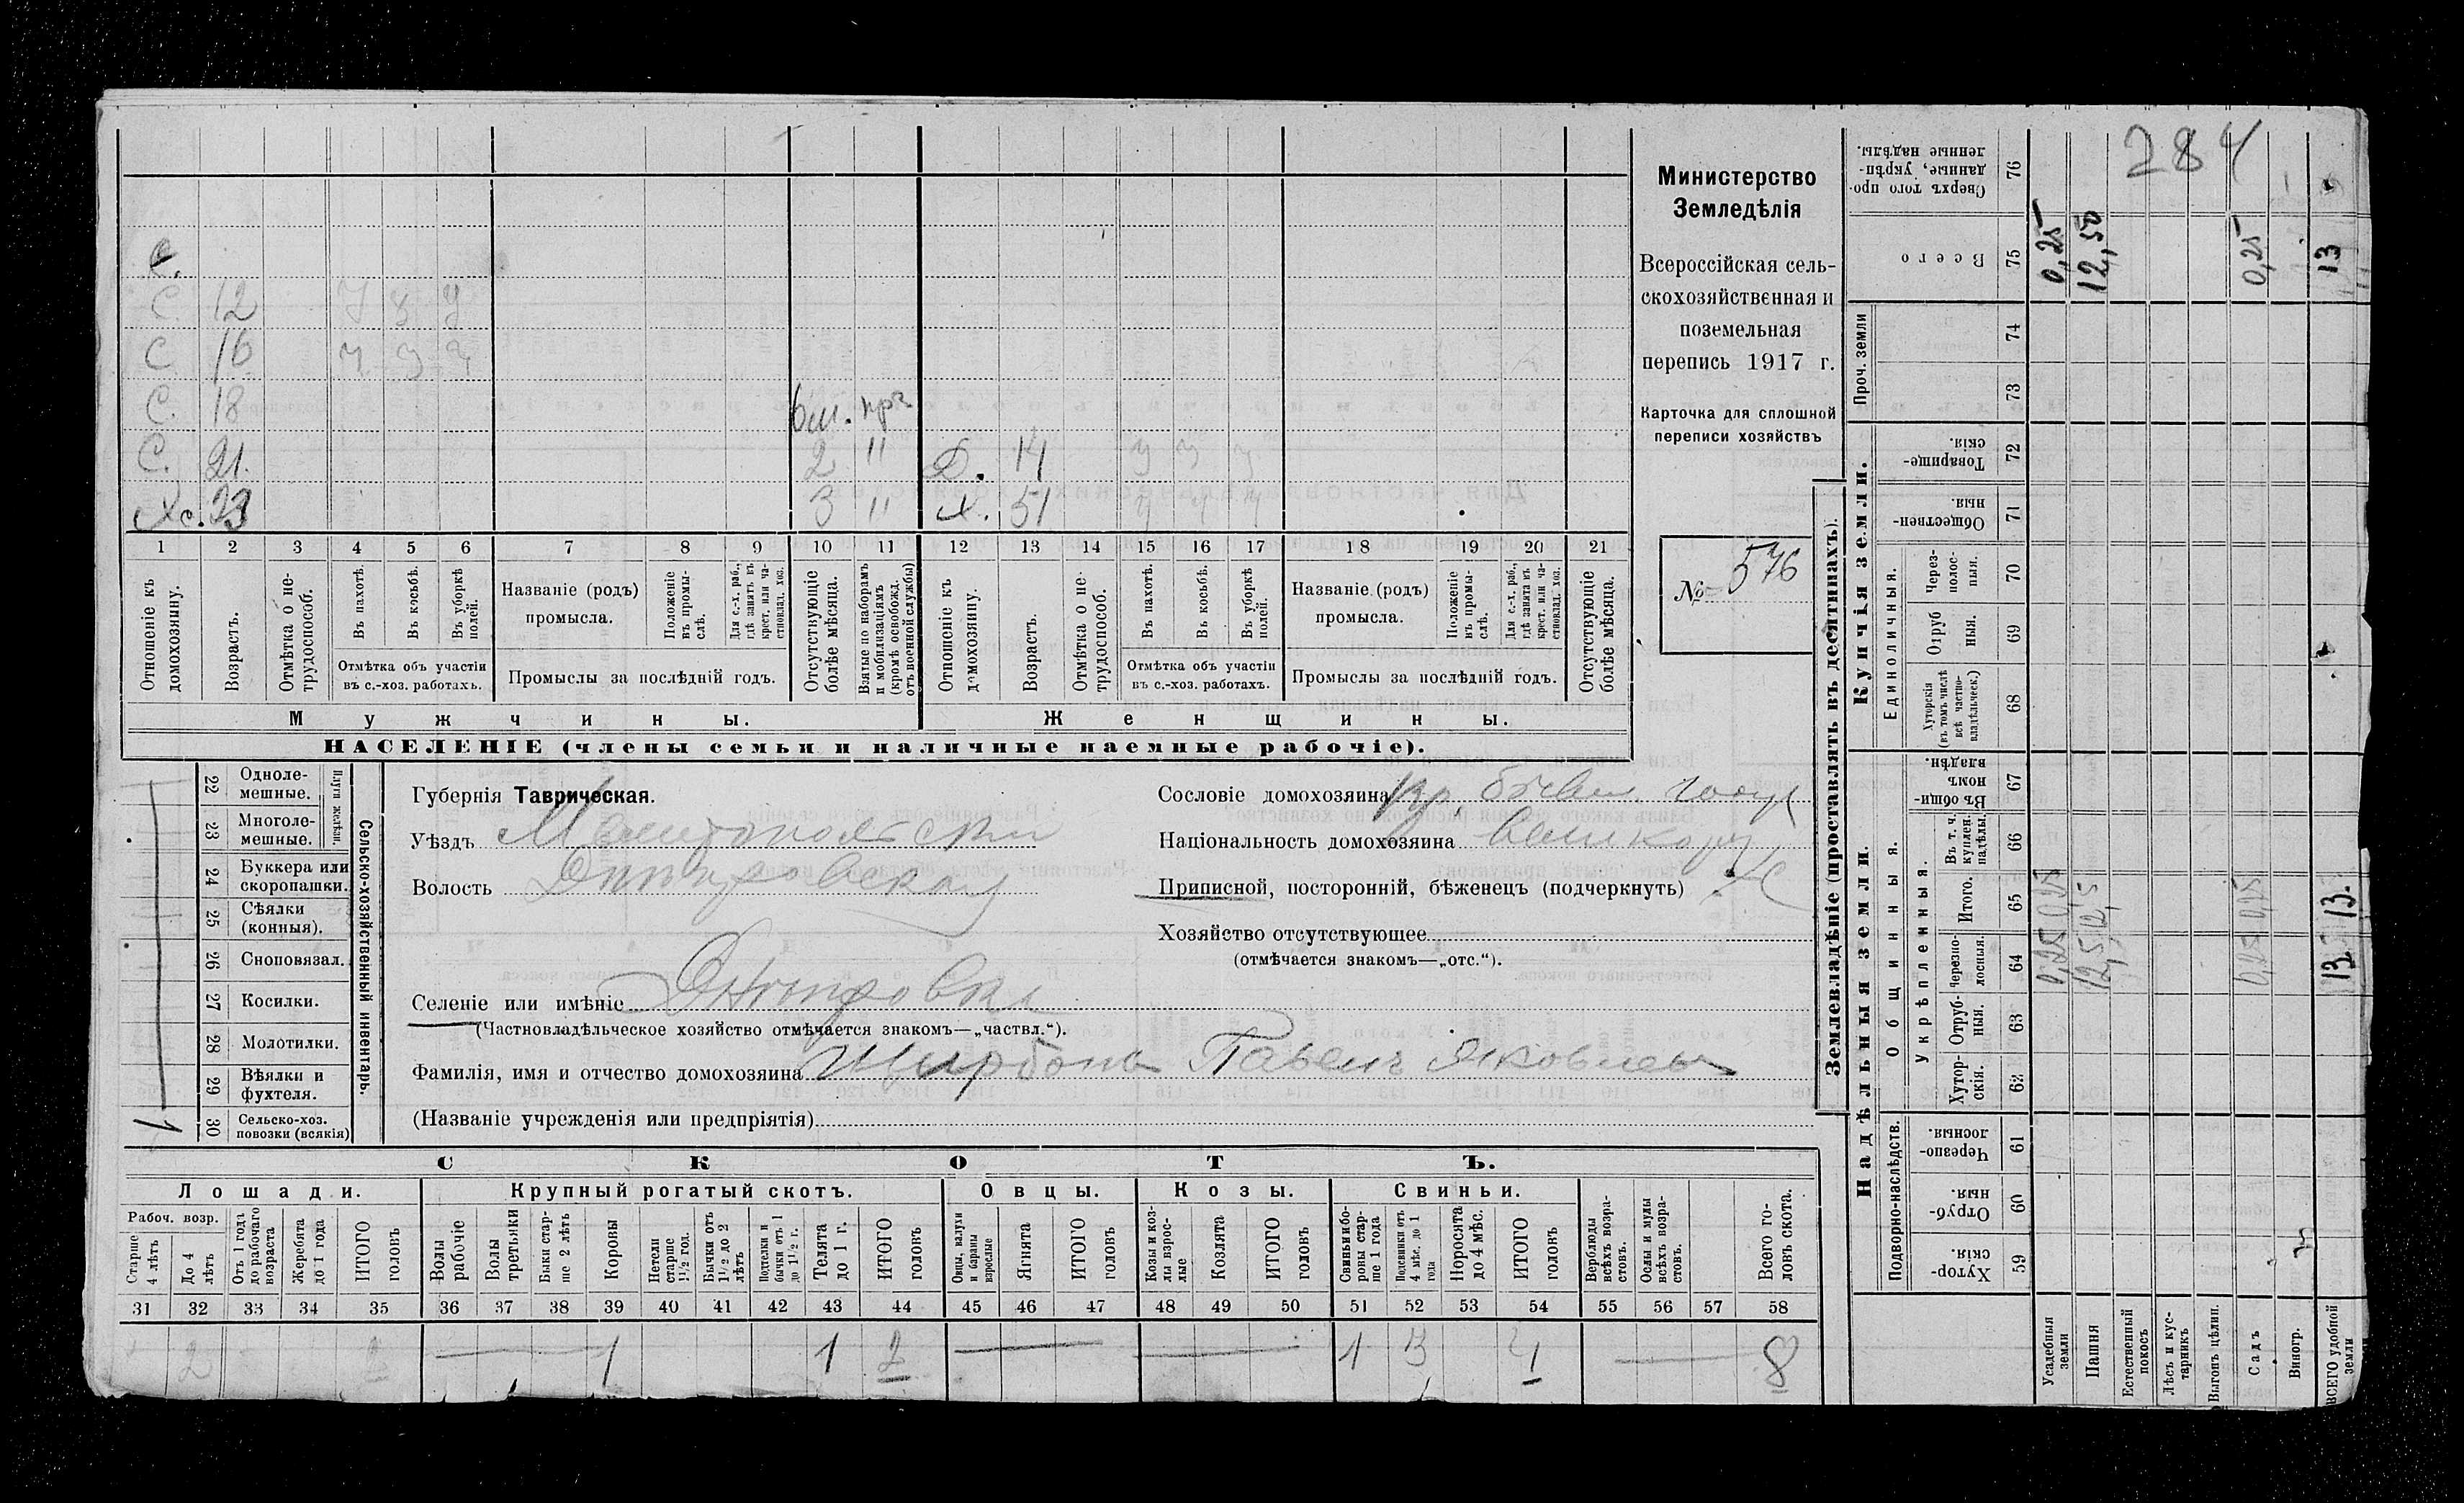 284
С.
С. 12 у у у
С 16 у у у
С. 18 6 м.
С. 21. 2 " Д. 14 у у у
Хс. 23 3 " х. 51 у у у
1 2 3 4 5 6 7 8 9 10 11 12 13 14 15 16 17 18 19 20 21
Отношеніе къ домохозяину.
Возрастъ.
Отмѣтка о не-трудоспособ.
Въ пахотѣ.
Въ косьбѣ.
Въ уборкѣ полей.
Отмѣтка объ участіи
въ с.-хоз. работахъ.
Названіе (родъ)
промысла.
Положеніе въ промы-слѣ.
Для с.-х. раб., гдѣ занятъ въ крест. или ча-стновлад. хоз.
Промыслы за послѣдній годъ.
Отсутствующіе болѣе мѣсяца.
Взятые по наборамъ и мобилизаціямъ (кромѣ освобожд. отъ военной службы)
Отношеніе къ домохозяину.
Возрастъ.
Отмѣтка о не-трудоспособ.
Въ пахотѣ.
Въ косьбѣ.
Въ уборкѣ полей.
Отмѣтка объ участіи
въ с.-хоз. работахъ.
Названіе (родъ)
промысла.
Положеніе въ промы-слѣ.
Для с.-х. раб., гдѣ занята въ крест. или ча-стновлад. хоз.
Промыслы за послѣдній годъ.
Отсутствующіе болѣе мѣсяца.
Мужчины.
Женщины.
НАСЕЛЕНІЕ (члены семьи и наличные наемные рабочіе).
Министерство
Земледѣлія
Всероссійская сель-
скохозяйственная и
поземельная
перепись 1917 г.
Карточка для сплошной
переписи хозяйствъ
№ 576
22 Одноле-мешные.
23 Многоле-мешные.
Плуги желѣзн.
24 Буккера или скоропашки.
25 Сѣялки (конныя).
26 Сноповязал.
27 Косилки.
28 Молотилки.
29 Вѣялки и фухтеля.
30 Сельско-хоз. повозки (всякія)
1
Сельско-хозяйственный инвентарь.
Губернія Таврическая.
Уѣздъ Мелитопольскій
Волость Днѣпровская
Селеніе или имѣніе Днѣпровка
(Частновладѣльческое хозяйство отмѣчается знакомъ—„частвл.“).
Фамилія, имя и отчество домохозяина Щербонъ Павелъ Яковлевъ
(Названіе учрежденія или предпріятія)
Сословіе домохозяина кр. бывш. госуд
Национальность домохозяина великору
Приписной, посторонній, бѣженецъ (подчеркнуть)
Хозяйство отсутствующее
(отмѣчается знакомъ—„отс.“).
СКОТЪ.
Лошади.
Крупный рогатый скотъ.
Овцы.
Козы.
Свиньи.
Рабоч. возр.
Старше 4 лѣтъ
До 4 лѣтъ
Отъ 1 года до рабочаго возраста
Жеребята до 1 года
ИТОГО головъ
Волы рабочіе
Волы третьяки
Быки стар-ше 2 лѣтъ
Коровы
Нетели старше 1½ год.
Бычки отъ 1½ до 2 лѣтъ
Подтелки и бычки отъ 1 до 1½ г.
Телята до 1 г.
ИТОГО головъ
Овцы, валухи и бараны взрослые
Ягнята
ИТОГО головъ
Козы и коз-лы взрос-лые
Козлята
ИТОГО головъ
Свиньи и бо-ровы стар-ше 1 года
Подсвинки отъ 4 мѣс. до 1 года
Поросята до 4 мѣс.
ИТОГО головъ
Верблюды всѣхъ возра-стовъ.
Ослы и мулы всѣхъ возра-стовъ.
Всего го-ловъ скота.
31 32 33 34 35 36 37 38 39 40 41 42 43 44 45 46 47 48 49 50 51 52 53 54 55 56 57 58
2 2 1 1 2 1 3 4 8
Землевладѣніе (проставлять въ десятинахъ).
Надѣльныя земли.
Купчія земли.
Подворно-наслѣдств.
Общинныя.
Укрѣпленныя.
Единоличныя.
Проч. земли
Хутор-скія. 59
Отруб-ныя. 60
Черезпо-лосныя. 61
Хутор-скія. 62
Отруб-ныя. 63
Черезпо-лосныя. 64
Итого. 65
Въ т. ч. куплен. надѣлы. 66
Въ общи-номъ владѣн. 67
Хуторскія (въ томъ числѣ всѣ частно-владѣльческ.) 68
Отруб ныя. 69
Через-полос-ныя. 70
Обществен-ныя. 71
Товарище-скія. 72
73
74
Всего 75
Сверхъ того про-данные, укрѣп-ленные надѣлы. 76
Усадебныя земли 0,25 0,25 0,25
Пашня 12,5 12,5 12,50
Естественный покосъ
Лѣсъ и кус-тарникъ
Выгонъ цѣлин.
Садъ 0,25 0,25 0,25
Виногр.
ВСЕГО удобной земли 13 13. 13